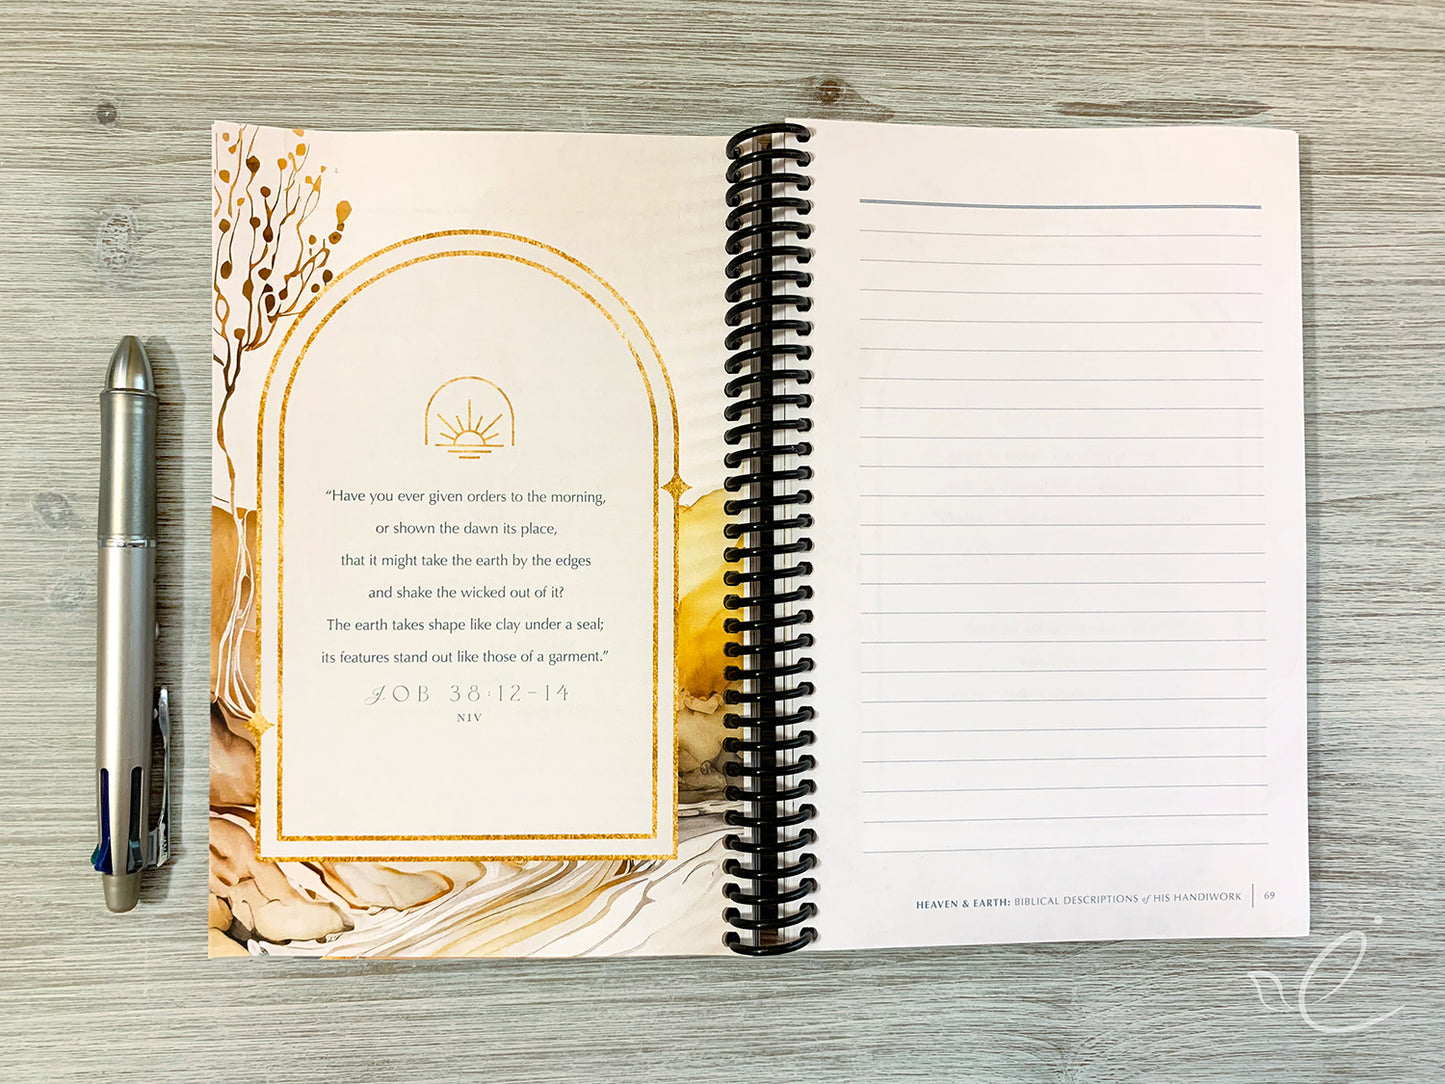 “Have you ever given orders to the morning,
or shown the dawn its place,
that it might take the earth by the edges
and shake the wicked out of it?
The earth takes shape like clay under a seal;
its features stand out like those of a garment.”
JOB 38:12-14
NIV
HEAVEN & EARTH: BIBLICAL DESCRIPTIONS of HIS HANDIWORK | 69